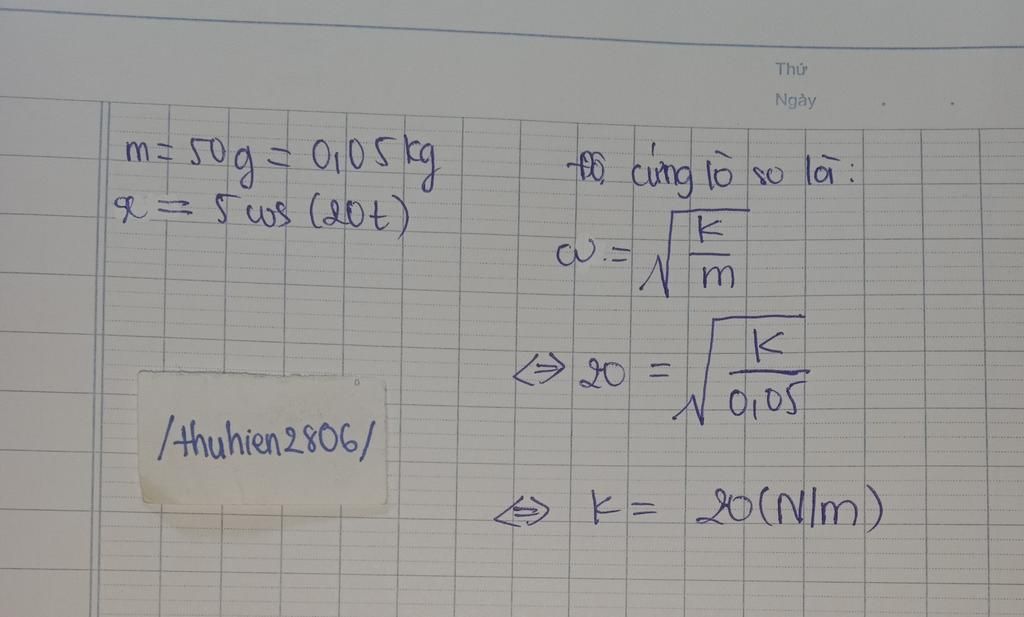 Thứ
Ngày
m = 50g = 0,05 kg
x = 5 cos (20t)
Độ cứng lò so là:
ω = √(K/m)
<=> 20 = √(K/0,05)
<=> K = 20 (N/m)
/thuhien2806/